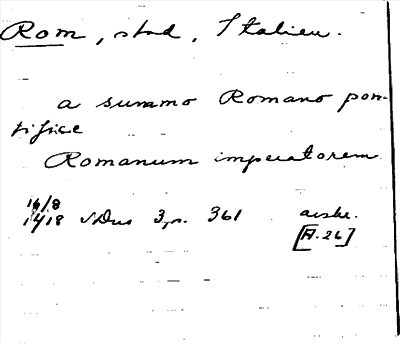 Rom, stad, Italien.
a summo Romano pon-
tifice
Romanum imperatorem
16/8
1418 SDns 3, p. 361 avskr.
[A.26]